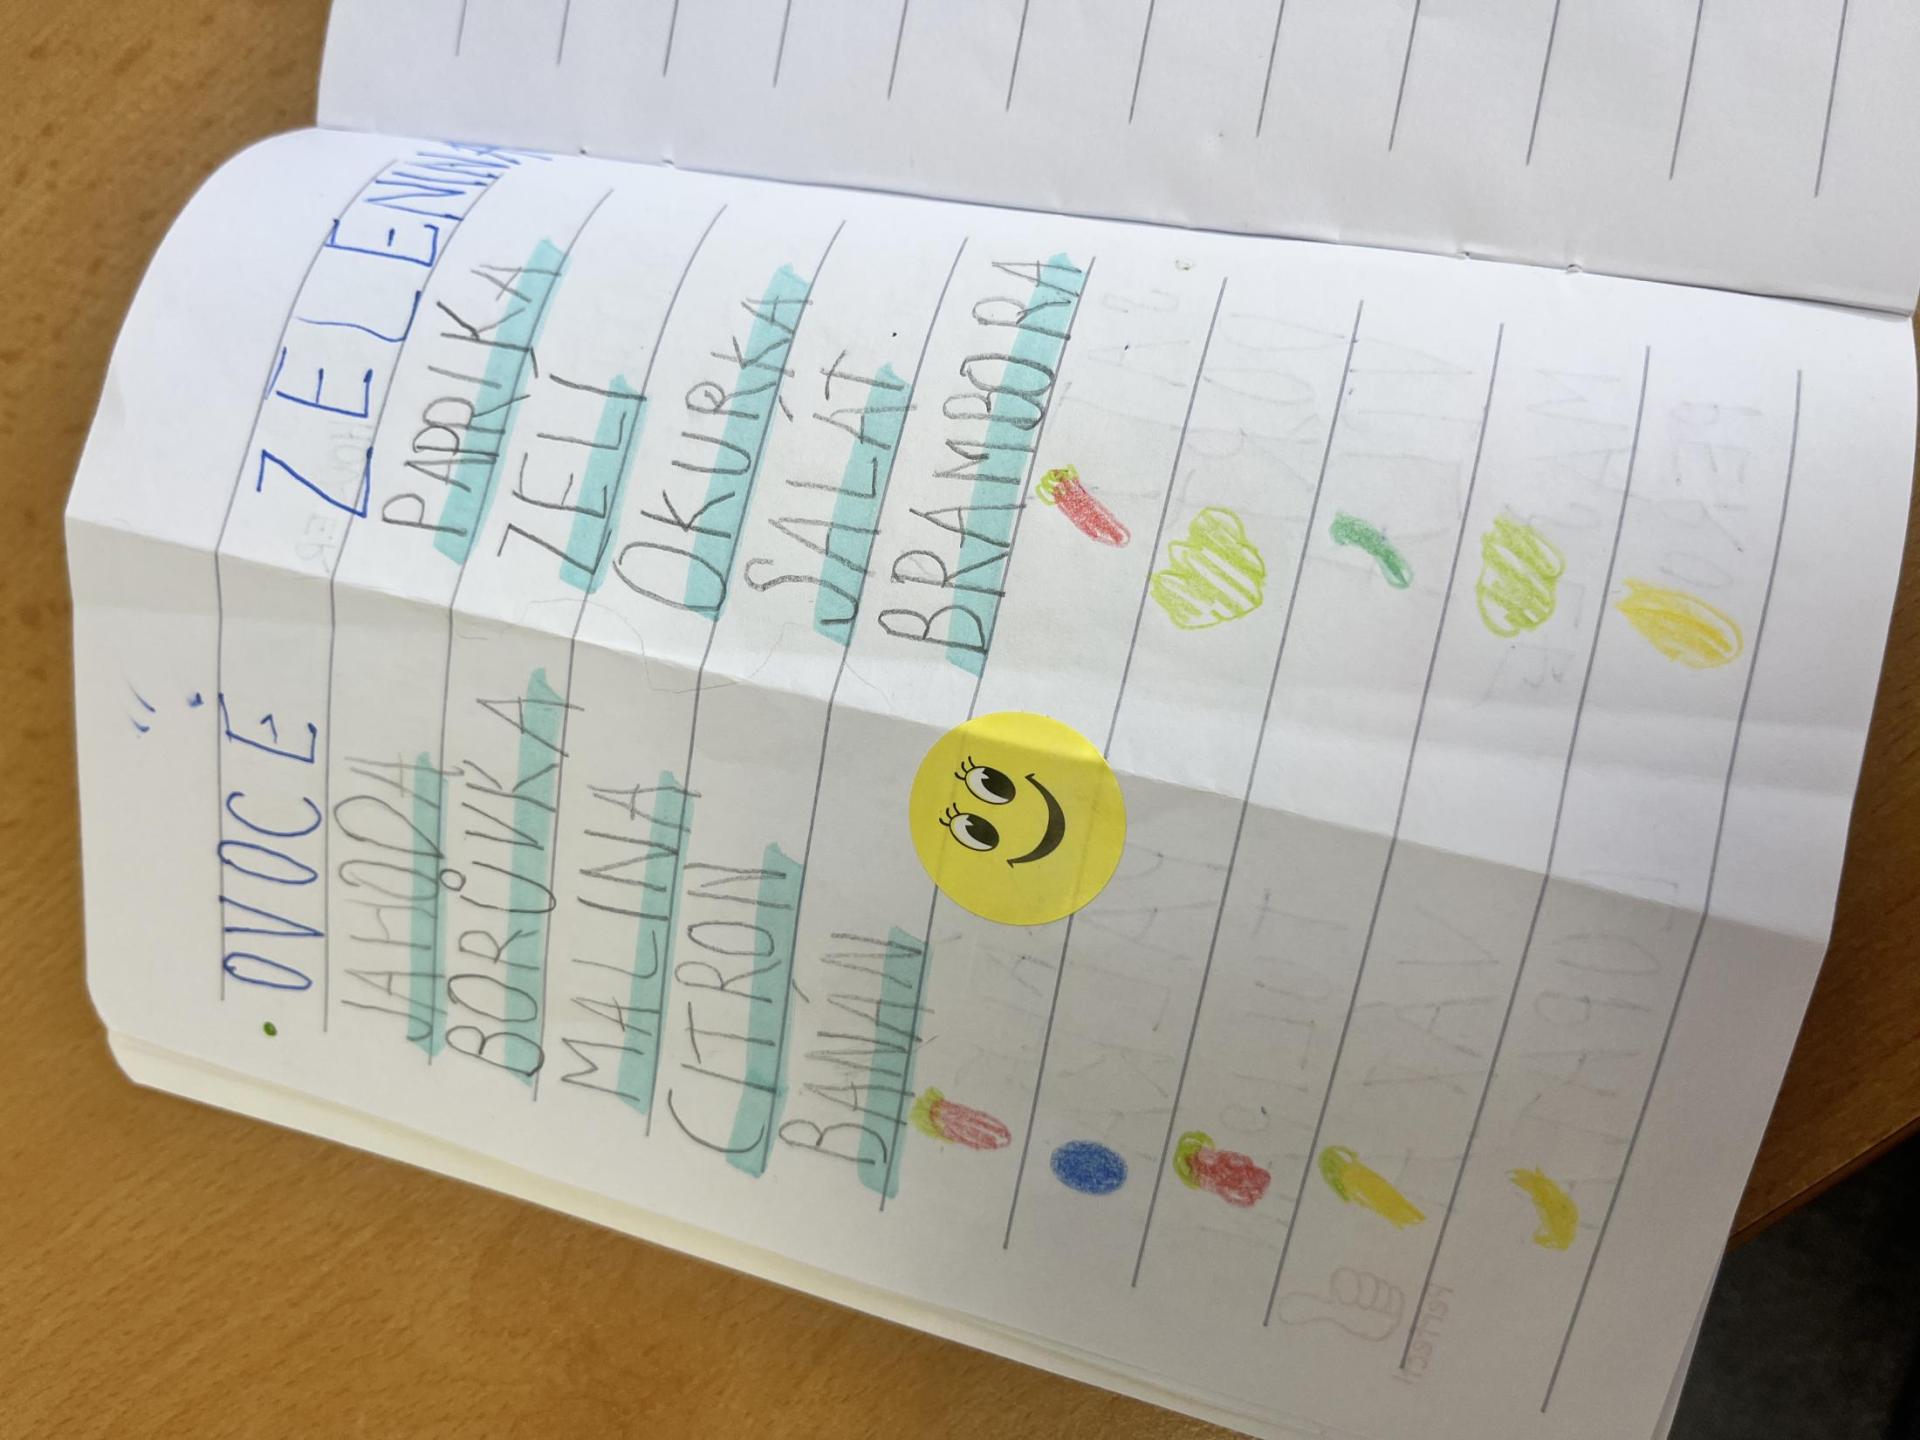 OVOCE
JAHODA
BORŮVKA
MALINA
CITRON
BANÁN
ZELENINA
PAPRIKA
ZELI
OKURKA
SALÁT
BRAMBORA